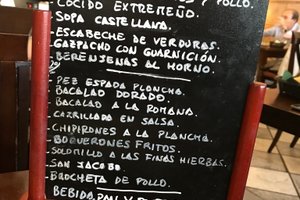 Y POLLO.
COCIDO EXTREMEÑO.
SOPA CASTELLANA.
ESCABECHE DE VERDURAS.
GAZPACHO CON GUARNICIÓN.
BERENJENAS AL HORNO.
PEZ ESPADA PLANCHA.
BACALAO DORADO.
BACALAO A LA ROMANA.
CARRILLADA EN SALSA.
CHIPIRONES A LA PLANCHA.
BOQUERONES FRITOS.
SOLOMILLO A LAS FINAS HIERBAS.
SAN JACOBO.
BROCHETA DE POLLO.
BEBIDA, PAN Y